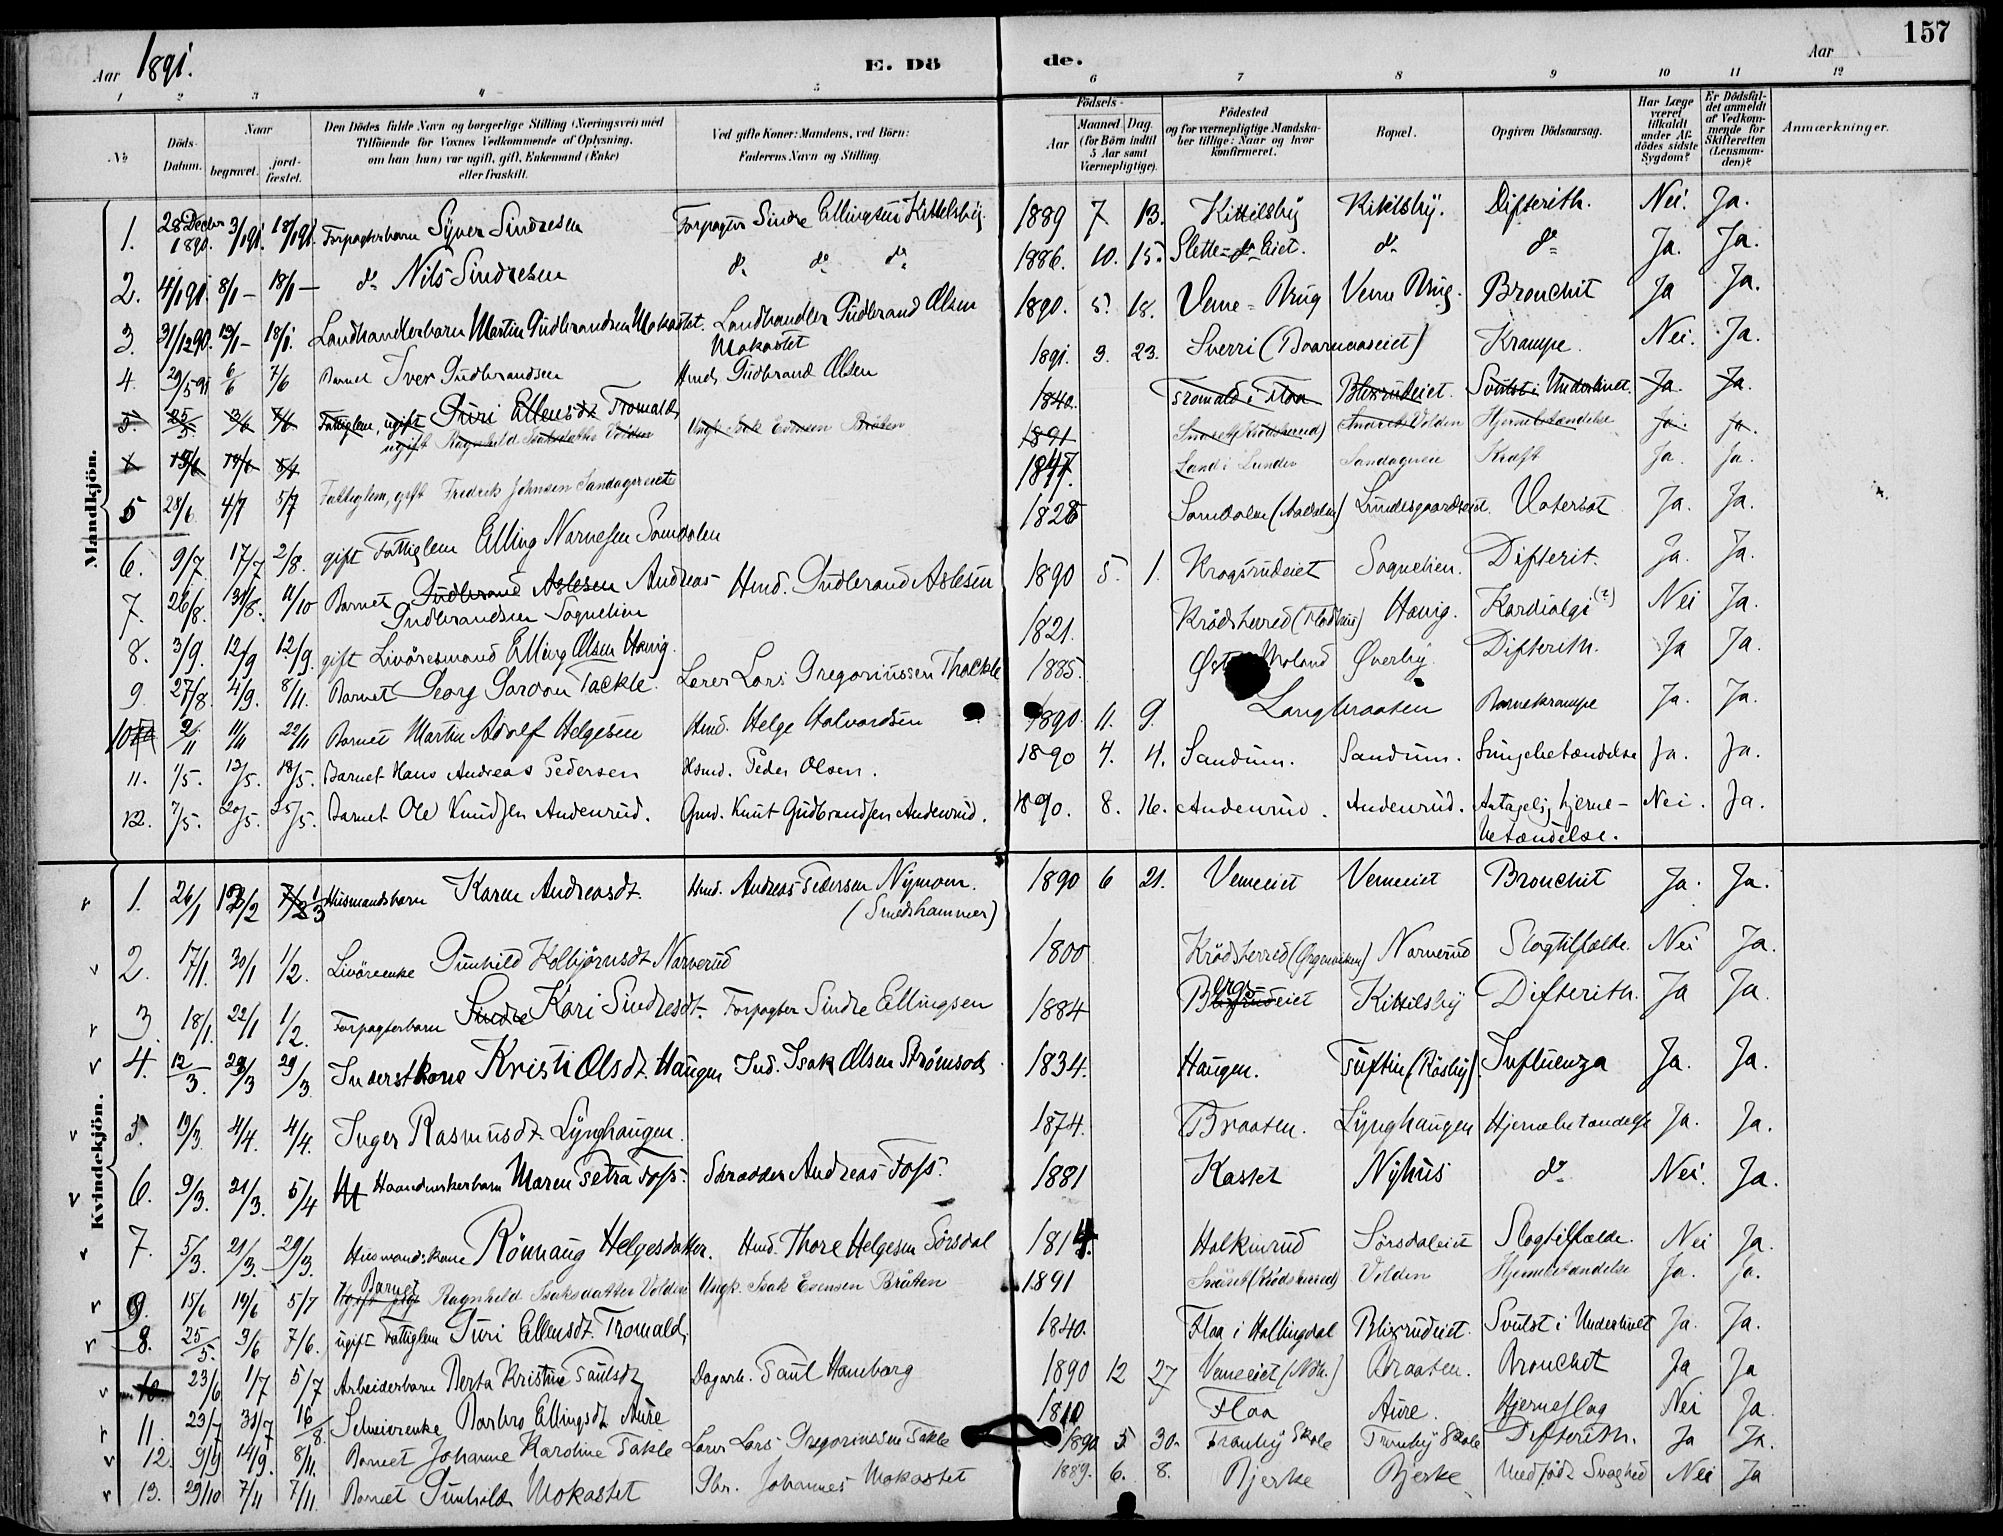 157
Aar 1891. E. Dö de. Aar
1 2 3 4 5 6 7 8 9 10 11 12
No
Döds-Datum.
Naar begravet. jord-fæstet.
Den Dödes fulde Navn og borgerlige Stilling (Næringsvei) med Tilföiende for Voxnes Vedkommende af Oplysning, om han (hun) var ugift, gift, Enkemand (Enke) eller fraskilt.
Ved gifte Koner: Mandens, ved Börn: Faderens Navn og Stilling.
Födsels-
Aar Maaned Dag.
(for Börn indtil 5 Aar samt Værnepligtige).
Födested og for værnepligtige Mandskaber tillige: Naar og hvor konfirmeret.
Bopæl.
Opgiven Dödsaarsag.
Har Læge været tilkaldt under Afdödes sidste Sygdom?
Er Dödsfaldet anmeldt af Vedkommende for Skifteretten (Lensmanden)?
Anmærkninger.
Mandkjön.
1. 28 Decbr 1890. 3/1 91. 18/1 91. Forpagterbarn Syver Sindresen Forpagter Sindre Ellingsen Kittelsby. 1889 7 13. Kittilsby Kittilsby. Difterith. Nei. Ja.
2. 4/1 91. 8/1 - 18/1 - do Nils Sindresen do do do 1886. 10. 15. Slette-Eiet. do do Ja. Ja.
3. 31/12 90. 12/1 - 18/1. Landhandlerbarn Martin Gudbrandsen Mokastet. Landhandler Gudbrand Olsen Mokastet 1890. 5. 18. Veme-Brug Veme Brug. Bronchit Ja Ja.
4. 29/5 91 6/6 7/6 Barnet Iver Gudbrandsen Hmd. Gudbrand Olsen 1891. 3. 23. Sverri Krampe. Nei. Ja.
5. 25/5 3/6 7/6 Fattiglem, ugift Guri Ellensdt. Tromald, 1840. Tromald i Flaa Blixrudeiet. Svulst i Underlivet. Ja. Ja.
ugift Ragnhild Isaksdatter Volden Ungk. Isak Evensen Bråten 1891 Volden Hjernebetændelse Ja. Ja.
5 28/6 4/7 5/7 Fattiglem, gift Fredrik Johnsen Sandagereiet 1847. Land i Lunder Sandageren Kræft Ja. Ja.
6. 9/7. 17/7 2/8. gift Fattiglem Elling Narvesen Somdalen 1828 Somdalen (Aadalen) Lundesgaardseiet. Vatersot Ja. Ja.
7. 26/8. 31/8. 11/10 Barnet Gudbrand Aslesen Andreas Gudbrandsen Soquelien Hmd. Gudbrand Aslesen 1890 5. 1. Krogsrudeiet Soquelien. Difterit. Ja. Ja.
8. 3/9. 12/9 12/9. gift Livöresmand Elling Olsen Hanig. 1821. Krödsherred Hanig. Kardialgi (?) Nei Ja.
9. 27/8. 4/9. 8/11. Barnet Georg Gordon Tackle. Lærer Lars Gregoriussen Thackle 1885. Moland Överby. Difterith. Ja Ja.
10 2/11 11/11 22/11 Barnet Martin Adolf Helgesen Hmd. Helge Halvordsen 1890. 11. 9. Langbraaten Barnekrampe Ja. Ja.
11. 1/5. 12/5. 18/5. Barnet Hans Andreas Pedersen Hsmd. Peder Olsen. 1890 4. 4. Sandum. Sandum. Lungebetændelse Ja. Ja.
12. 7/5. 20/5. 25/5. Barnet Ole Knudsen Andenrud. Gmd. Knut Gudbrandsen Andenrud. 1890. 8. 16. Andenrud. Andenrud. Antagelig hjerne-betændelse. Nei. Ja.
Kvindekjön.
1. 26/1 13/2 1/3 Husmandsbarn Karen Andreasdt. Hmd. Andreas Pedersen Nymoen. (Smedshammer) 1890 6 21. Vemeeiet Vemeeiet Bronchit Ja. Ja.
2. 17/1. 30/1 1/2. Livöreenke Gunhild Kolbjörnsdt. Narverud 1800 Krödsherred Narverud Slagtilfælde. Nei Ja.
3. 18/1. 22/1 1/2. Forpagterbarn Sindre Kari Sindresdt. Forpagter Sindre Ellingsen 1884 Bergseiet Kittilsby Difterith. Ja Ja.
4. 12/3. 29/3 29/3. Inderstkone Kristi Olsdt. Haugen Ind. Isak Olsen Strömsod. 1834. Haugen. Tuftin (Råsby). Influenza Ja. Ja.
5. 19/3. 4/4. 4/4. Inger Rasmusdt. Lynghaugen. 1874. Braaten. Lynghaugen Hjernebetændelse Ja. Ja.
6. 9/3. 21/3. 5/4 Haandverkerbarn Maren Petra Foss. Skrædder Andreas Foss. 1881 Kastet Nyhus do Nei. Ja.
7. 5/3. 21/3. 29/3. Husmandskone Rönnaug Helgesdatter. Hmd. Thore Helgesen Sörsdal 1814. Halkinrud Sörsdaleiet Slagtilfælde. Nei Ja.
9. 15/6 19/6 5/7 Barnet Ragnhild Isaksdatter Volden Ungk. Isak Evensen Bråten 1891 Snåret (Krödsherred) Volden Hjernebetændelse Ja. Ja.
8. 25/5. 3/6 7/6. ugift Fattiglem Guri Ellensdt. Tromald, 1840. Flaa i Hallingdal Blixrudeiet. Svulst i Underlivet Ja. Ja.
10. 23/6 1/7 5/7 Arbeiderbarn Berta Kristine Paulsdt. Dagarb. Paul Hamborg 1890 12 27 Vemeeiet Braaten. Bronchit Ja Ja
11. 23/7 31/7 16/8. Selveierenke Barbro Ellingsdt. Aure 1810 Flaa Aure. Hjerneslag Nei Ja.
12. 9/9 14/9. 8/11. Barnet Johanne Karoline Takle Lærer Lars Gregoriussen Takle 1890 5 30. Tranby Skole Tranby Skole Difterith. Ja Ja.
13. 29/10 7/11 7/11. Barnet Gunhild Mokastet Gbr. Johannes Mokastet 1889. 6. 8. Bjerke Bjerke Medfödt Svaghed Nei Ja